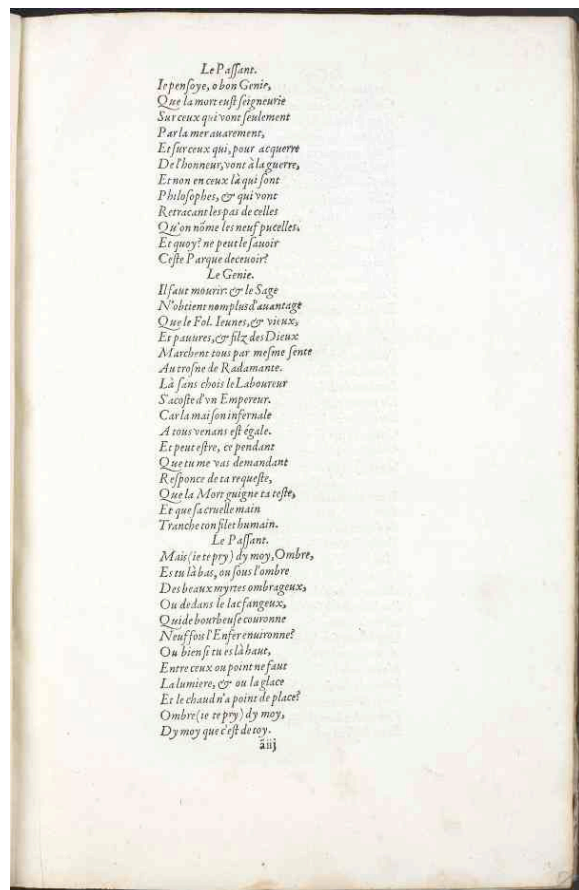 Le Paſſant.
Ie penſoye, o bon Genie,
Que la mort euſt ſeigneurie
Sur ceux qui vont ſeulement
Par la mer auarement,
Et ſur ceux qui, pour acquerre
De l'honneur, vont à la guerre,
Et non en ceux là qui ſont
Philoſophes, & qui vont
Retracant les pas de celles
Qu'on nõme les neuf pucelles.
Et quoy? ne peut le ſauoir
Ceſte Parque deceuoir?
Le Genie.
Il faut mourir: & le Sage
N'obtient nomplus d'auantage
Que le Fol. Ieunes, & vieux,
Et pauures, & filz des Dieux
Marchent tous par meſme ſente
Au troſne de Radamante.
Là ſans chois le Laboureur
S'acoſte d'vn Empereur.
Car la maiſon infernale
A tous venans eſt égale.
Et peut eſtre, ce pendant
Que tu me vas demandant
Reſponce de ta requeſte,
Que la Mort guigne ta teſte,
Et que ſa cruelle main
Tranche ton filet humain.
Le Paſſant.
Mais (ie te pry) dy moy, Ombre,
Es tu là bas, ou ſous l'ombre
Des beaux myrtes ombrageux,
Ou dedans le lac fangeux,
Qui de bourbeuſe couronne
Neuf fois l'Enfer enuironne?
Ou bien ſi tu es là haut,
Entre ceux ou point ne faut
La lumiere, & ou la glace
Et le chaud n'a point de place?
Ombre (ie te pry) dy moy,
Dy moy que c'eſt de toy.
ãiij